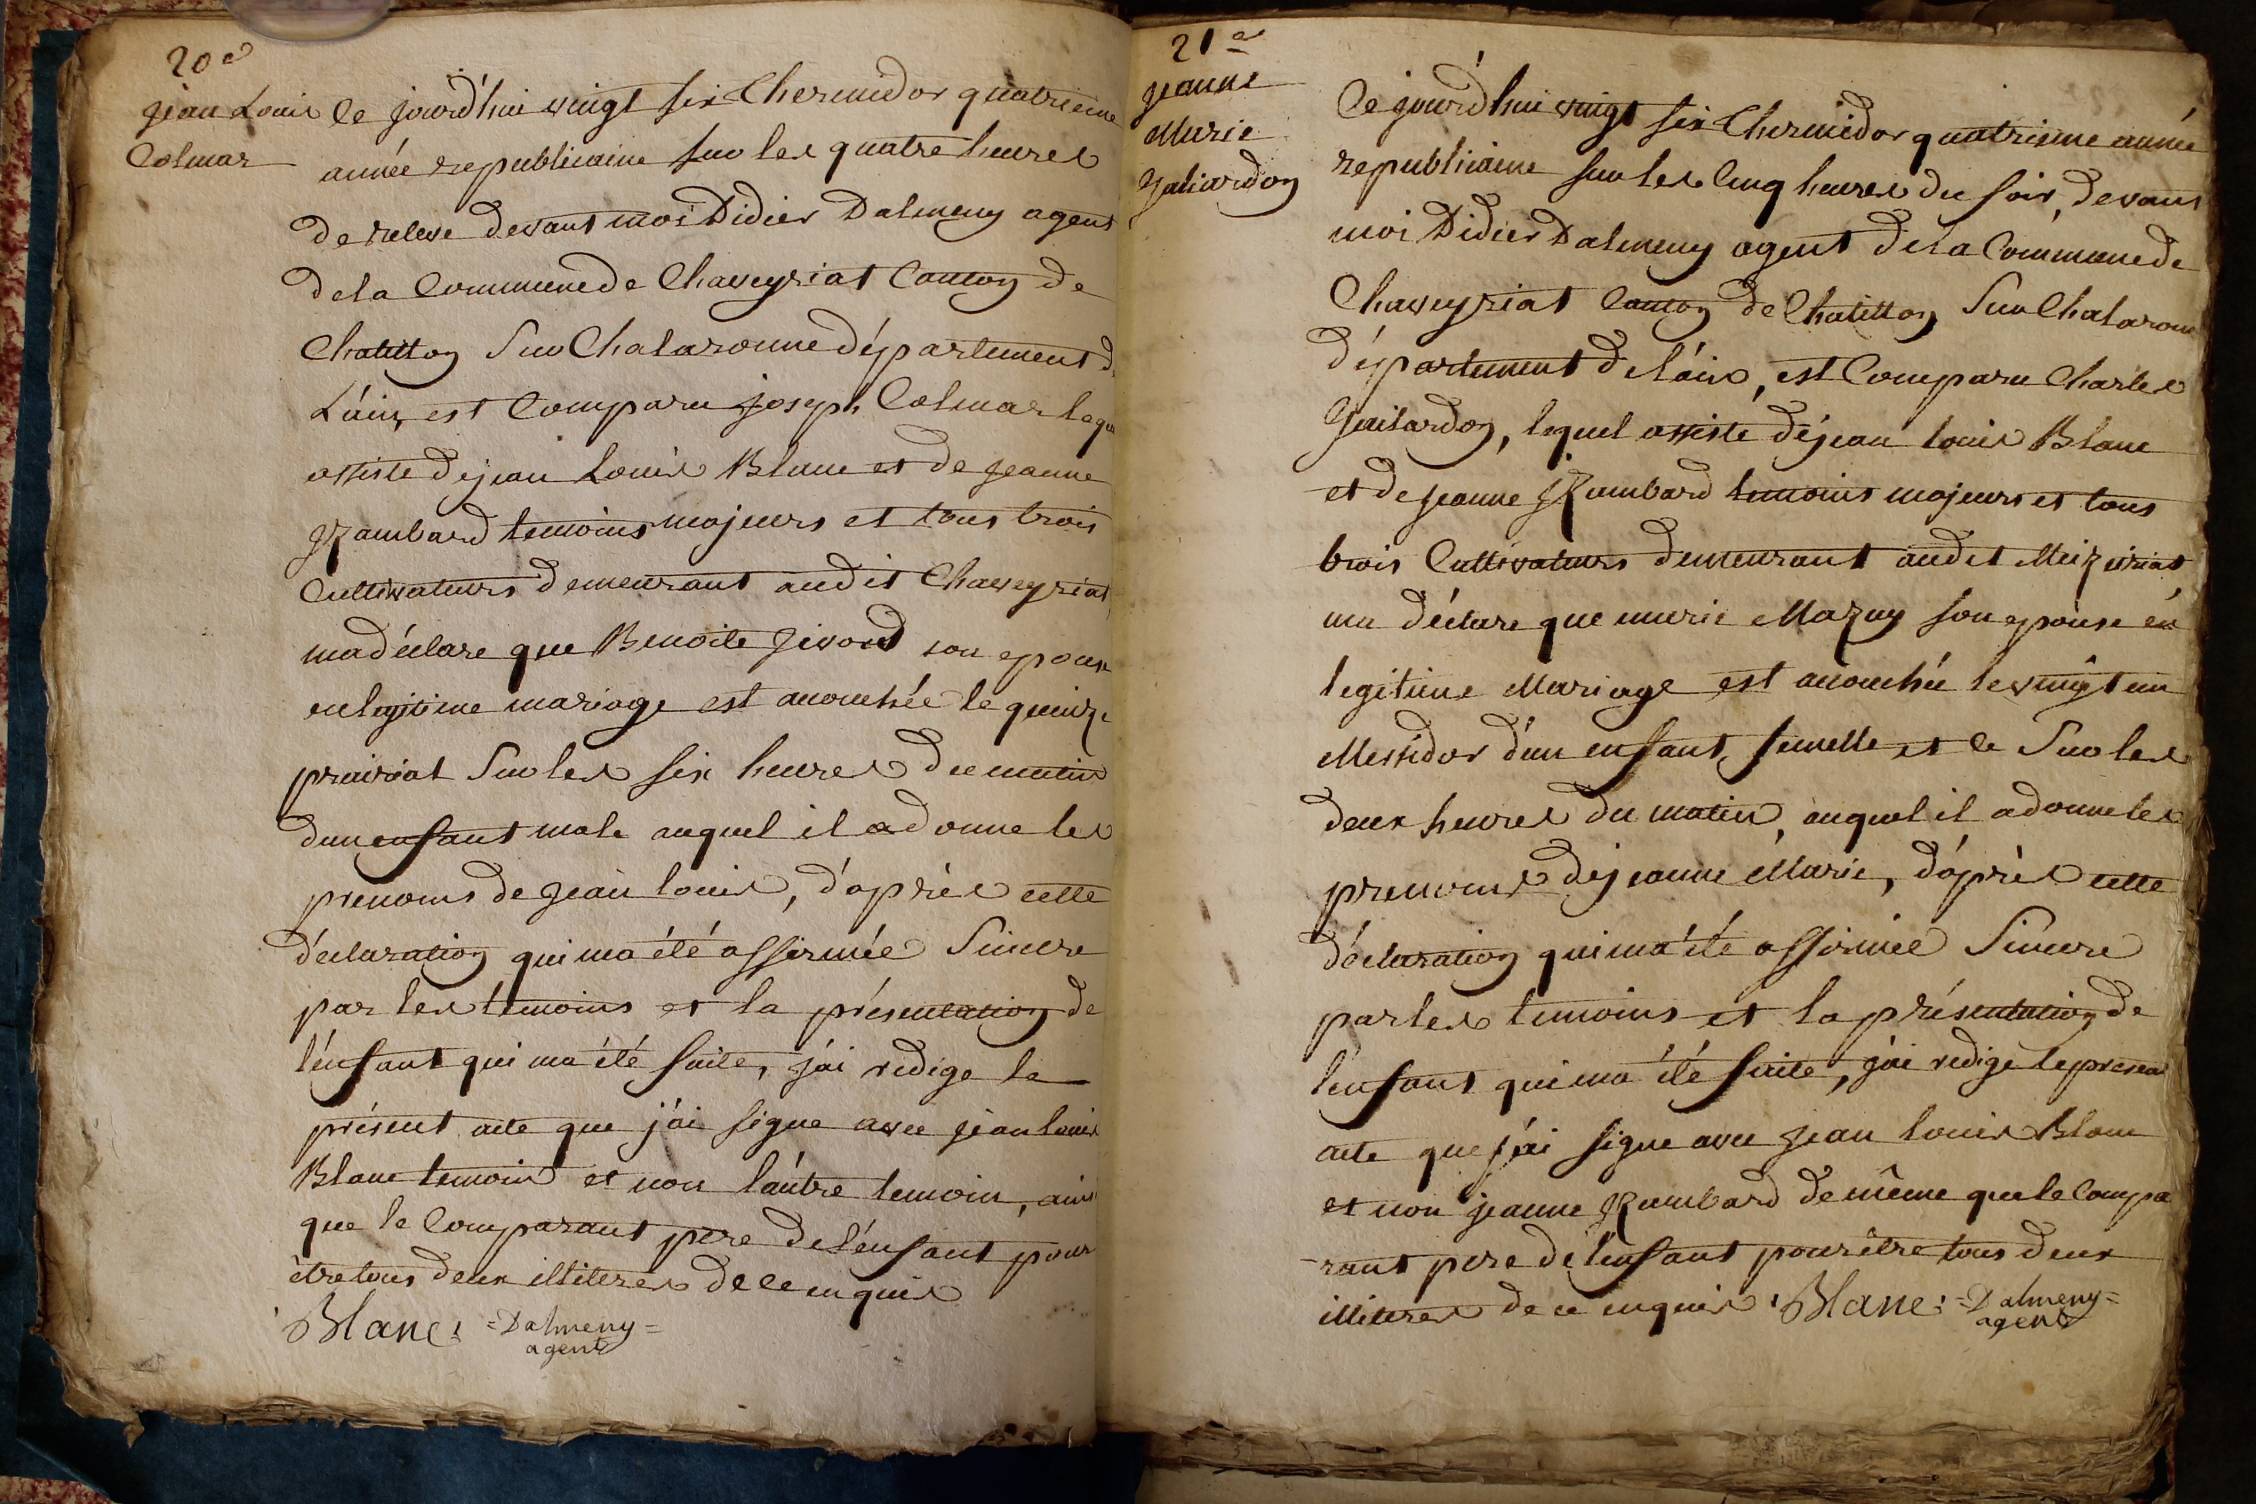 20e
jean Louis
Colmar
Ce jourd'hui vingt six Thermidor quatrieme
année republicaine sur les quatre heures
de releve devant moi Didier Dalmeny agent
de la Commune de Chaveyriat Canton de
Chatillon Sur Chalaronne département d
L'ain, est Comparu joseph Colmar lequ
assiste de jean Louis Blanc et de jeanne
Rambard temoins majeurs et tous trois
Cultivateurs demeurant audit Chaveyriat
ma déclare que Benoite son epouse
en legitime mariage est accouchée le quinze
prairial Sur les six heures du matin
dun enfant male auquel il a donne les
prenoms de jean louis, d'après cette
déclaration qui ma été affirmée Sincere
par les témoins et la présentation de
l'énfant qui ma été faite, j'ai redige le
présent acte que j'ai signe avec jean louis
Blanc temoin et non láutre temoin, ainsi
que le Comparant pere de l'énfant pour
être tous deux illiteres de ce enquis
Blanc = Dalmeny =
agent
21e
jeanne
Marie
Galiardon
Ce jourd'hui vingt six Thermidor quatrieme année
republicaine sur les Cinq heures du soir, devant
moi Didier Dalmeny agent de la Commune de
Chaveyriat Canton de Chatillon Sur Chalaronne
département de l'áin, est Comparu Charles
Gailardon, lequel assisté de jean louis Blanc
et de jeanne Rambard temoins majeurs et tous
trois Cultivateurs demeurant audit Meizeriat
ma déclare que marie Mazuy son epouse en
legitime Mariage est accouchée le vingt un
Messidor d'un enfant femelle et ce Sur les
deux heures du matin, auquel il a donne les
prenoms de jeanne Marie, d'óprès cette
déclaration qui ma été affirmée Sincere
par les temoins et la présentation de
l'énfant qui ma été faite, j'ai redige le present
acte que j'ai signe avec jean louis Blanc
et non jeanne Rambard de même que le Compa
-rant pere de l'énfant pour être tous deux
illiteres de ce enquis Blanc = Dalmeny =
agent